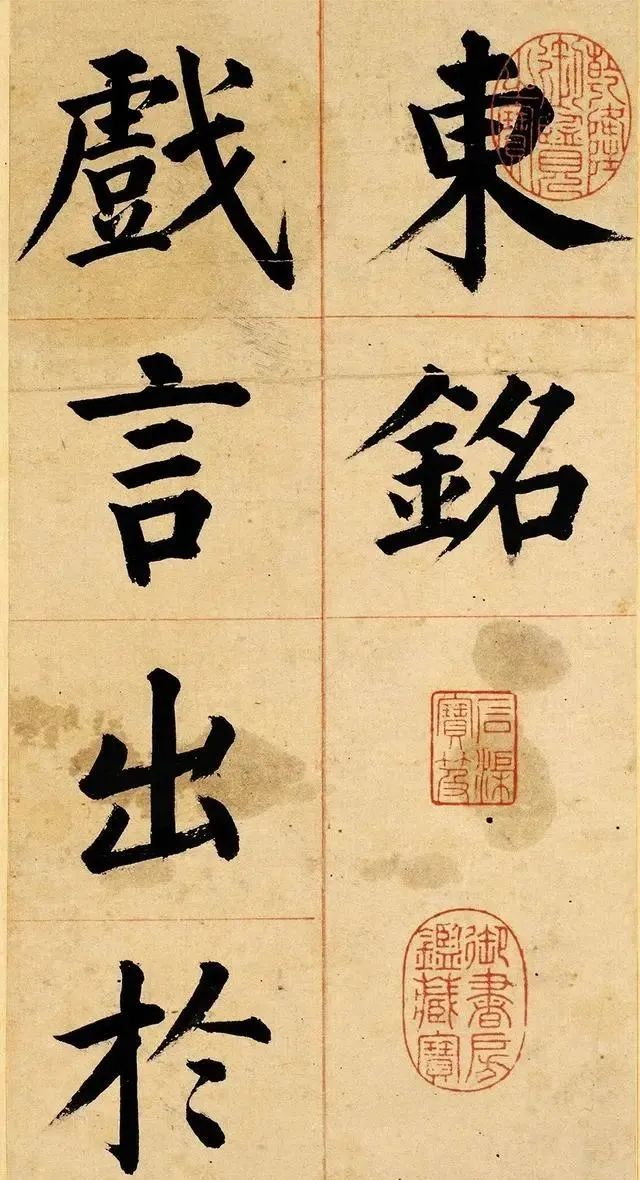 乾隆
御覽
之寶
東銘
石渠
寶笈
御書房
鑑藏寶
戲言出於